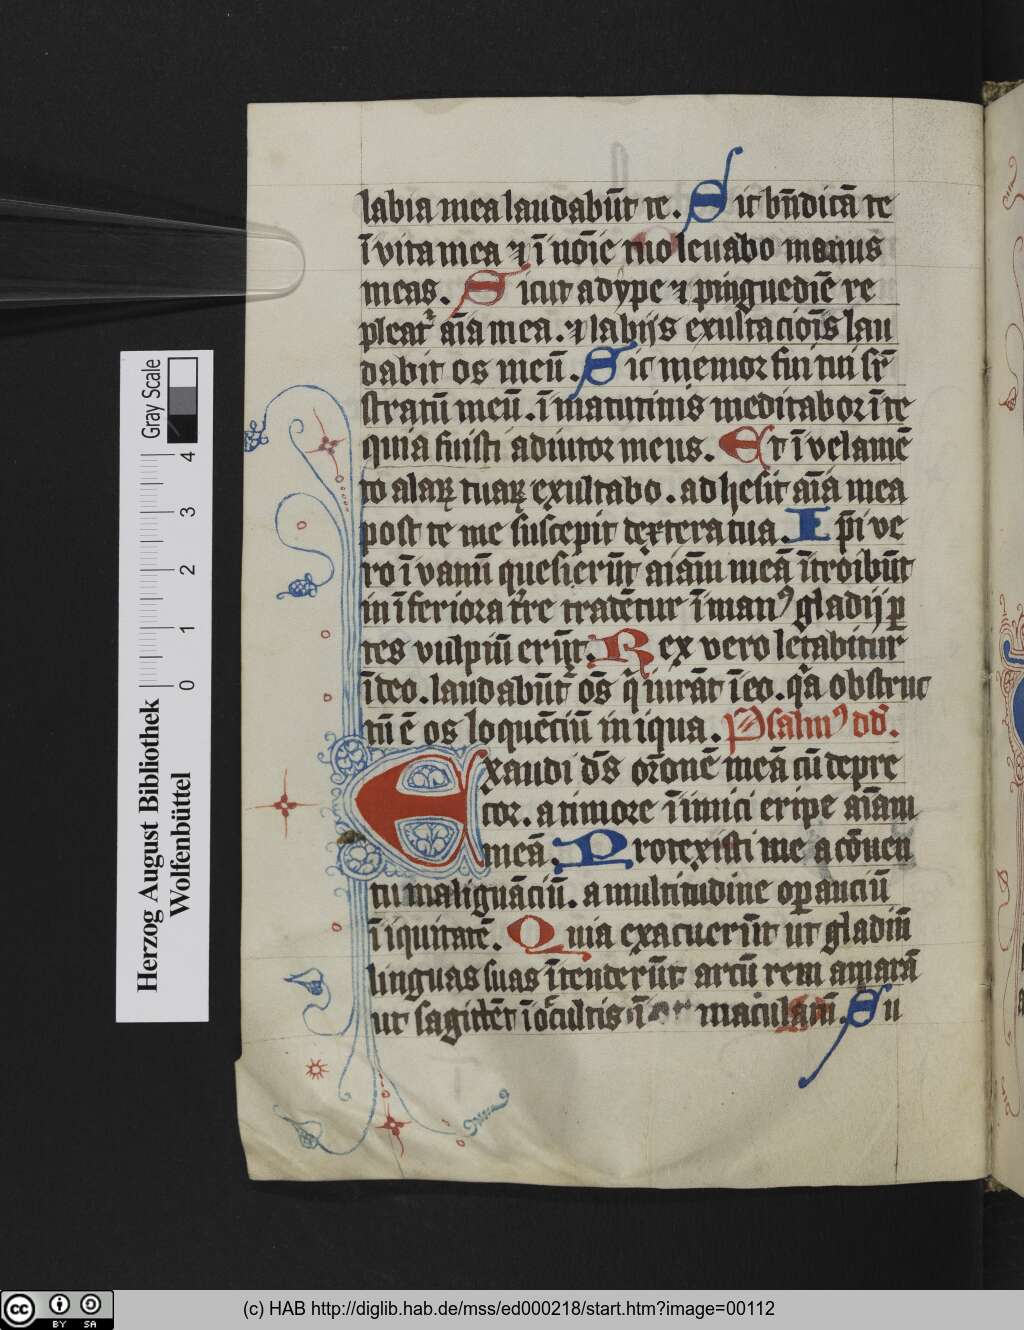 labia mea laudabūt te. Sic bn̄dicā te
ī vita mea ⁊ ī noīe tuo leuabo manus
meas. Sicut adype ⁊ pinguediē re
pleat᷑ aīa mea. ⁊ labijs exultacioīs lau
dabit os meū. Sic memor fui tui sr̄
stratū meū. ī matutinis meditabor ī te
quia fuisti adiutor meus. Et ī velamē
to alaꝝ tuaꝝ exultabo. adhesit aīa mea
post te me suscepit dextera tua. Ip̄i ve
ro ī vanū quesierūt aīam meā ītroibūt
in īferiora t̄re tradētur ī manꝰ gladij ꝑ
tes vulpiū erūt. Rex vero letabitur
ī deo. laudabūt᷑ oēs q̄ iurāt ī eo. qa obstruc
tū ē os loquēciū iniqua. Psalmꝰ dd.
Exaudi ds̄ or̄onē meā cū depre
cor. a timore īimici eripe aīam
meā. Protexisti me a cōuen
tu malignāciū. a multitudine oꝑanciū
īiquitatē. Quia exacuerūt ut gladiū
linguas suas ītenderūt arcū rem amarā
ut sagittēt ī ocultis īmaculatū. Su
Herzog August Bibliothek
Wolfenbüttel
Gray Scale
0 1 2 3 4
cc BY SA
(c) HAB http://diglib.hab.de/mss/ed000218/start.htm?image=00112